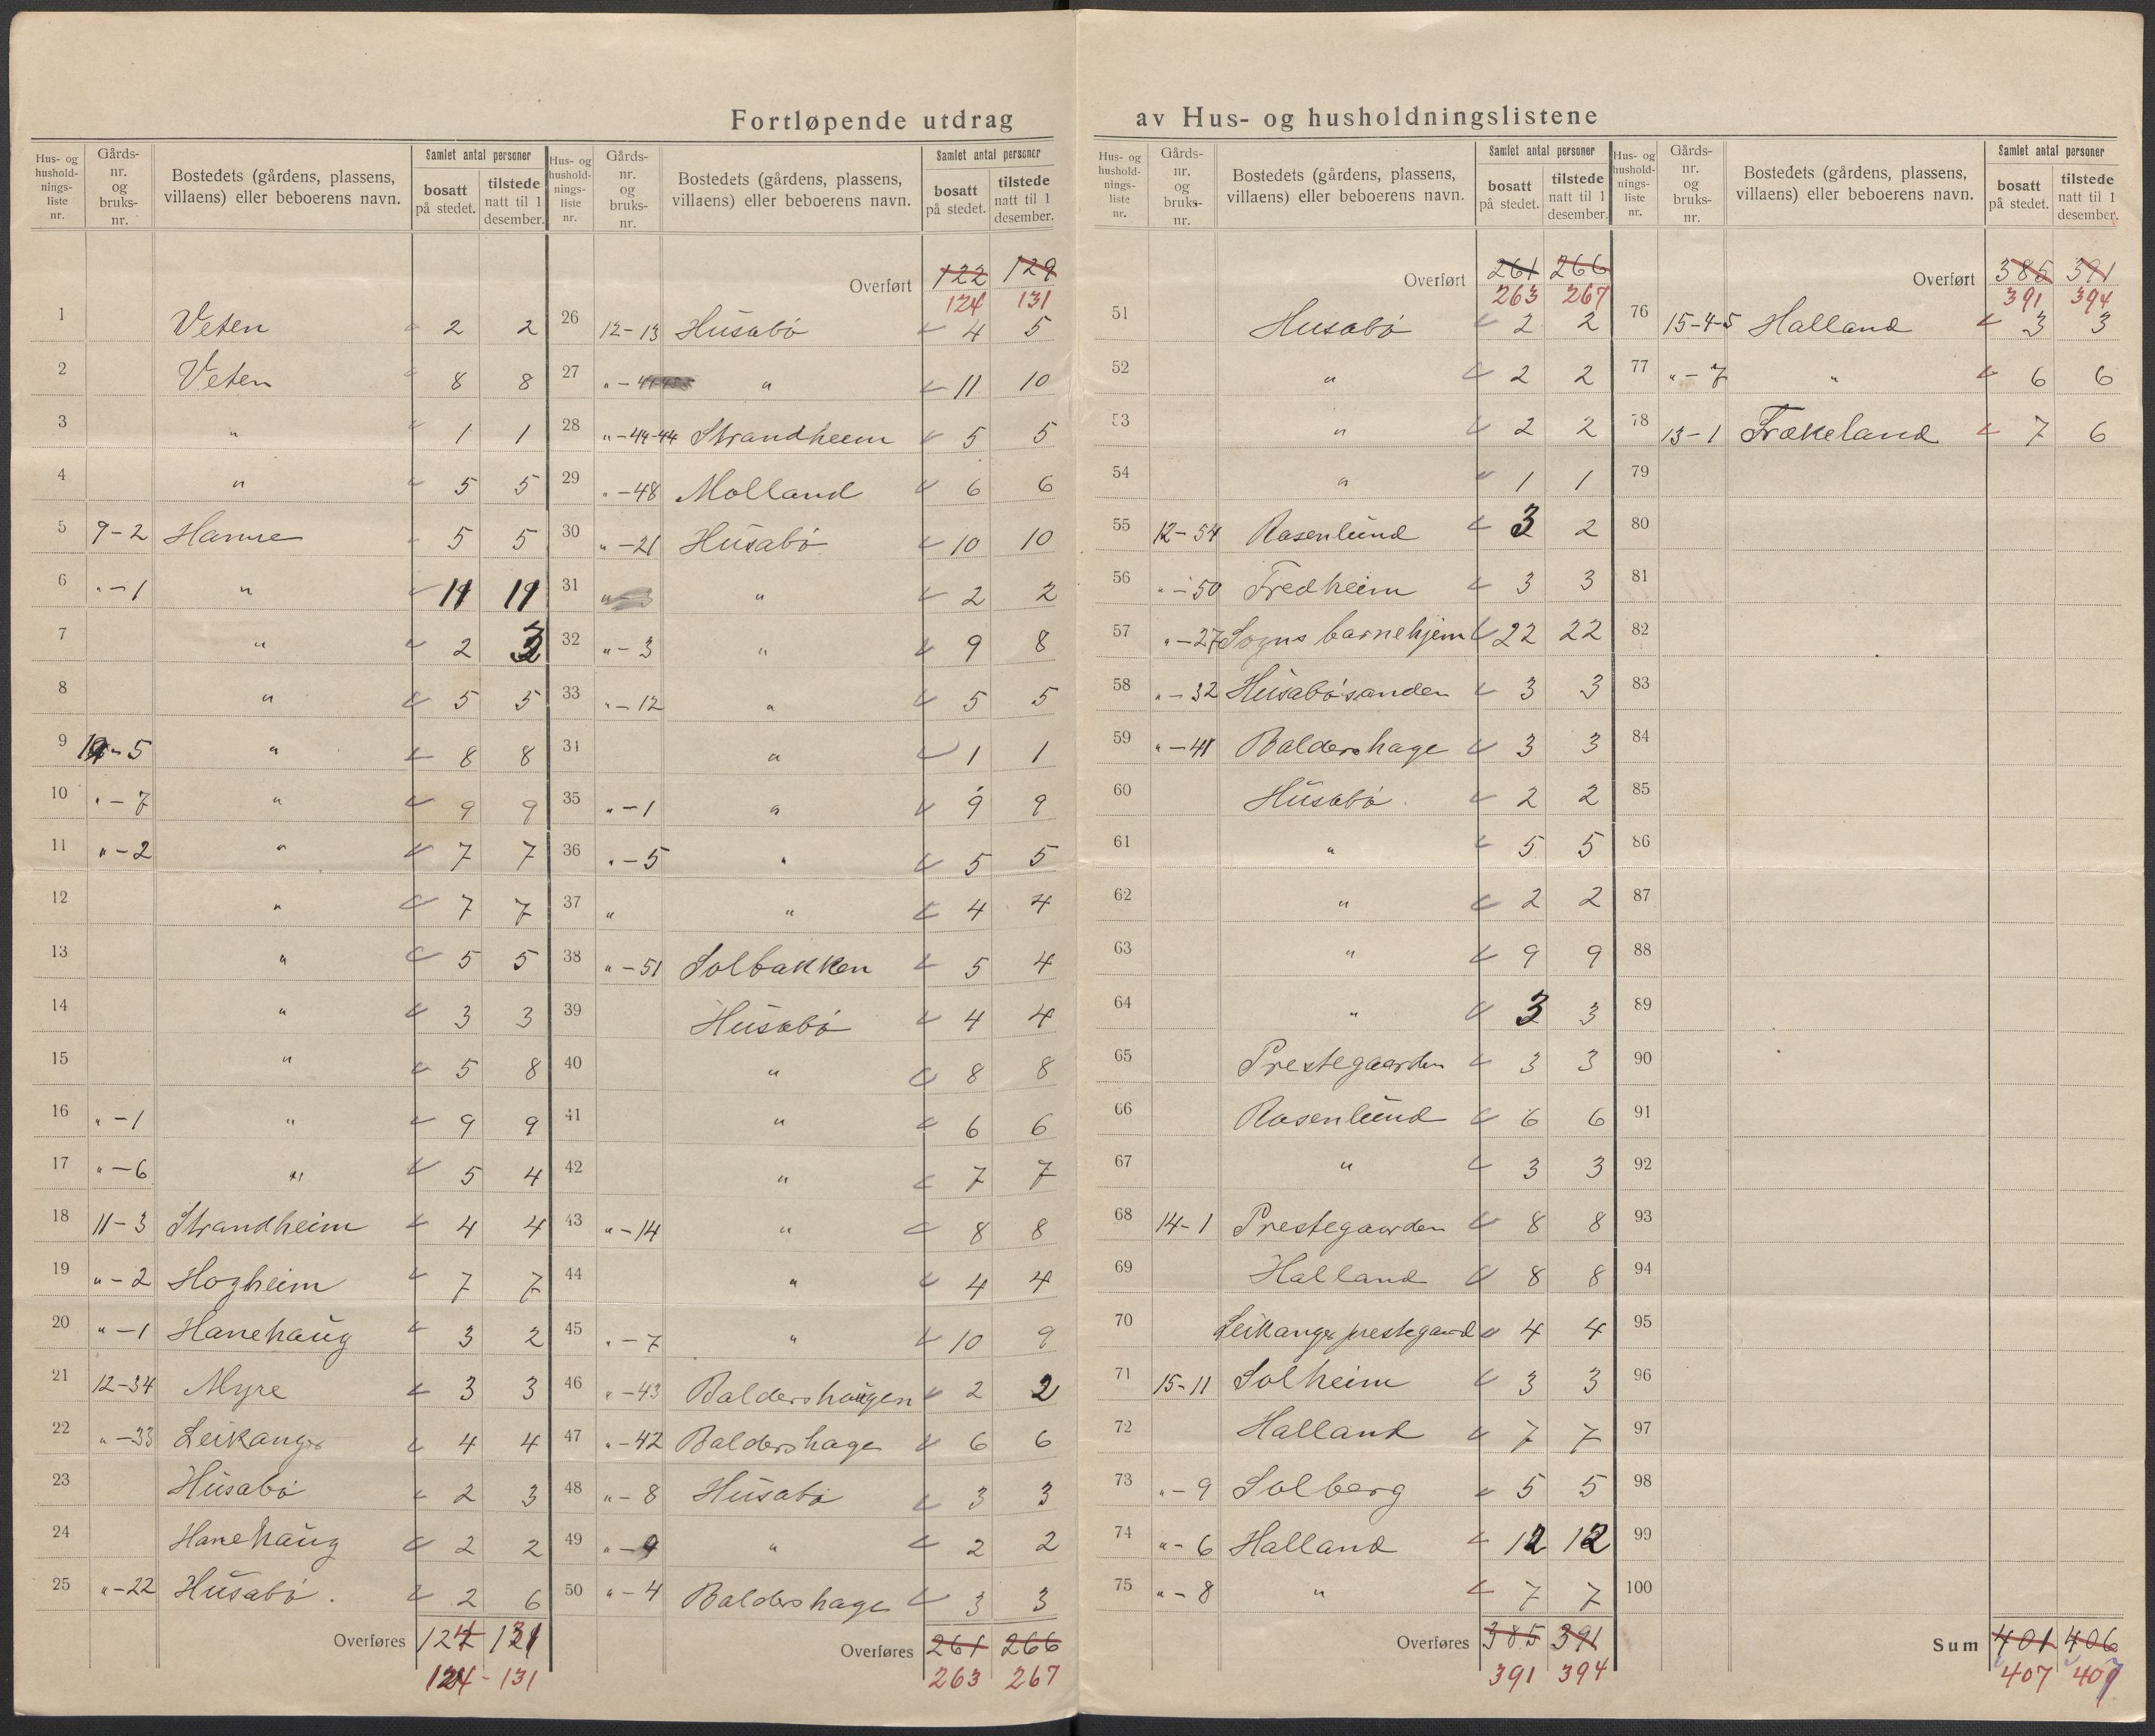 Fortløpende utdrag av Hus- og husholdningslistene
Hus- og hushold- nings- liste nr. | Gårds- nr. og bruks- nr. | Bostedets (gårdens, plassens, villaens) eller beboerens navn. | Samlet antal personer | bosatt på stedet. | tilstede natt til 1 desember.
1 Veten 2 2
2 Veten 8 8
3 " 1 1
4 " 5 5
5 9-2 Hamre 5 5
6 "-1 " 11 11
7 " 2 3
8 " 5 5
9 10-5 " 8 8
10 "-7 " 9 9
11 "-2 " 7 7
12 " 7 7
13 " 5 5
14 " 3 3
15 " 5 8
16 "-1 " 9 9
17 "-6 " 5 4
18 11-3 Strandheim 4 4
19 "-2 Hogheim 7 7
20 "-1 Hanehaug 3 2
21 12-34 Myre 3 3
22 "-33 Leikanger 4 4
23 Husabø 2 3
24 Hanehaug 2 2
25 "-22 Husabø. 2 6
Overføres 124 131
124-131
Hus- og hushold- nings- liste nr. | Gårds- nr. og bruks- nr. | Bostedets (gårdens, plassens, villaens) eller beboerens navn. | Samlet antal personer | bosatt på stedet. | tilstede natt til 1 desember.
Overført 122 129
124 131
26 12-13 Husabø 4 5
27 " 11 10
28 "-44-44 Strandheim 5 5
29 "-48 Molland 6 6
30 "-21 Husabø 10 10
31 " 2 2
32 "-3 " 9 8
33 "-12 " 5 5
34 " 1 1
35 "-1 " 9 9
36 "-5 " 5 5
37 " " 4 4
38 "-51 Solbakken 5 4
39 Husabø 4 4
40 " 8 8
41 " 6 6
42 " 7 7
43 "-14 " 8 8
44 " 4 4
45 "-7 " 10 9
46 "-43 Baldershaugen 2 2
47 "-42 Baldershage 6 6
48 "-8 Husabø 3 3
49 "-9 " 2 2
50 "-4 Baldershage 3 3
Overføres 261 266
263 267
Hus- og hushold- nings- liste nr. | Gårds- nr. og bruks- nr. | Bostedets (gårdens, plassens, villaens) eller beboerens navn. | Samlet antal personer | bosatt på stedet. | tilstede natt til 1 desember.
Overført 261 266
263 267
51 Husabø 2 2
52 " 2 2
53 " 2 2
54 " 1 1
55 12-54 Rosenlund 3 2
56 "-50 Fredheim 3 3
57 "-27 Sogns barnehjem 22 22
58 "-32 Husabøsanden 3 3
59 "-41 Baldershage 3 3
60 Husabø. 2 2
61 " 5 5
62 " 2 2
63 " 9 9
64 " 3 3
65 Prestegaarden 3 3
66 Rosenlund 6 6
67 " 3 3
68 14-1 Prestegaarden 8 8
69 Halland 8 8
70 Leikanger prestegaard 4 4
71 15-11 Solheim 3 3
72 Halland 7 7
73 "-9 Solberg 5 5
74 "-6 Halland 12 12
75 "-8 " 7 7
Overføres 385 391
391 394
Hus- og hushold- nings- liste nr. | Gårds- nr. og bruks- nr. | Bostedets (gårdens, plassens, villaens) eller beboerens navn. | Samlet antal personer | bosatt på stedet. | tilstede natt til 1 desember.
Overført 385 391
391 394
76 15-4-5 Halland 3 3
77 "-7 " 6 6
78 13-1 Frækeland 7 6
79
80
81
82
83
84
85
86
87
88
89
90
91
92
93
94
95
96
97
98
99
100
Sum 401 406
407 409